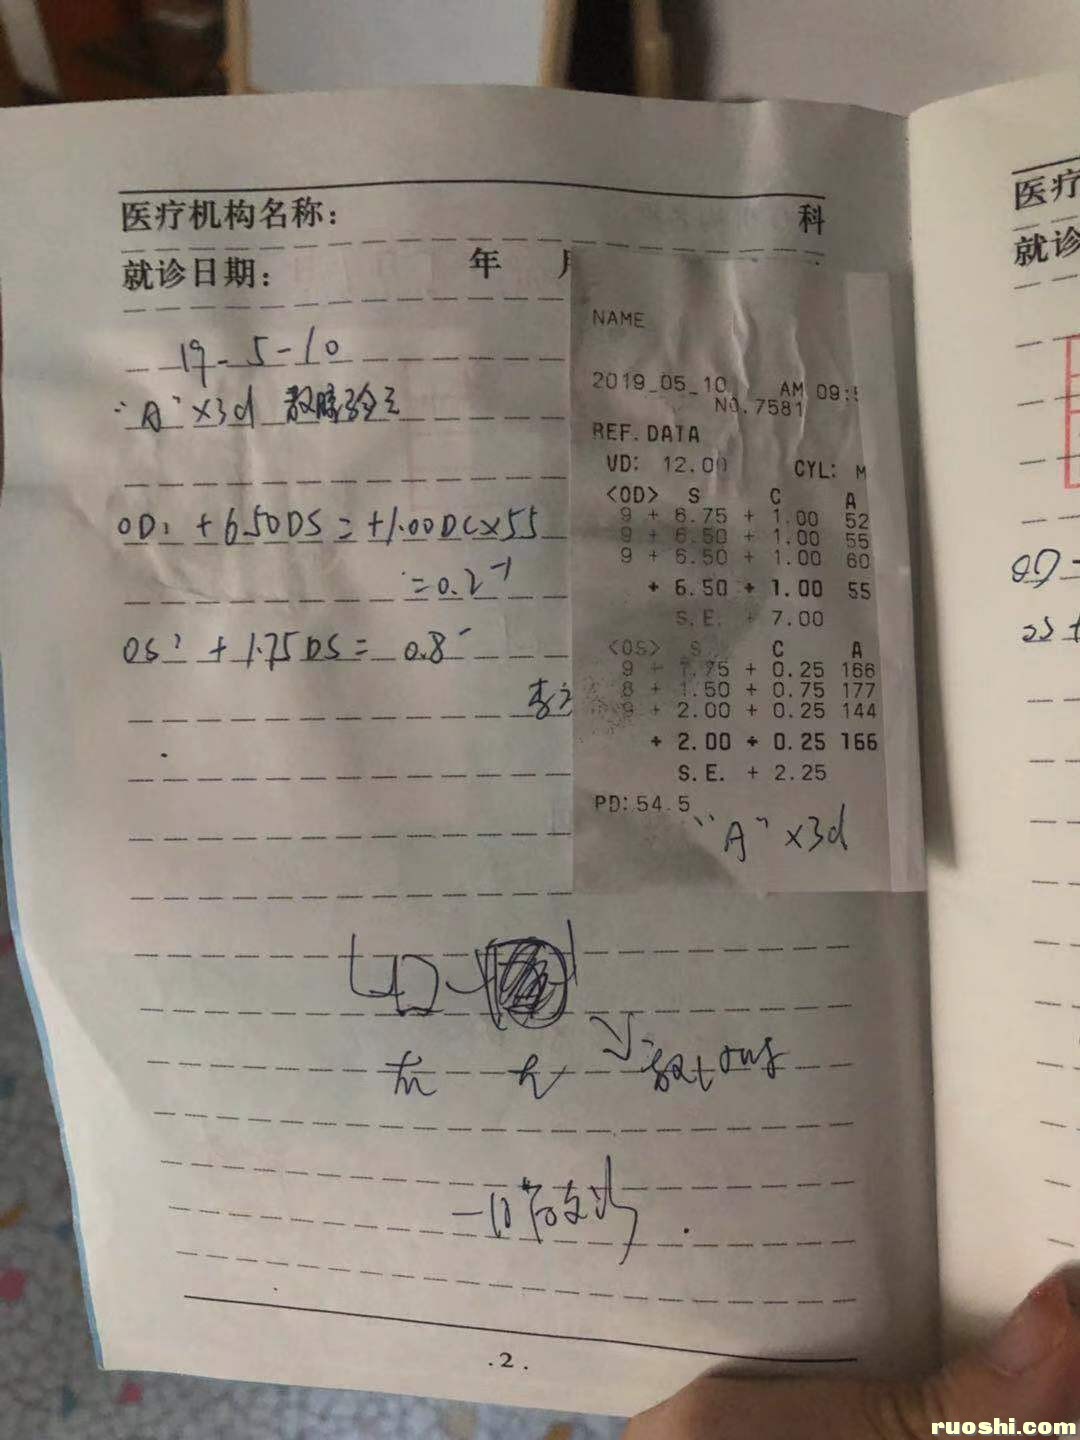 医疗机构名称: 科
就诊日期: 年 月
19-5-10
"A" x3d 散瞳验光
OD: +6.50DS = +1.00DC×55
=0.2⁻¹
OS: +1.75DS = 0.8⁻
NAME
2019_05_10 AM 09:5
NO.7581
REF.DATA
VD: 12.00 CYL: M
<OD> S C A
9 + 6.75 + 1.00 52
9 + 6.50 + 1.00 55
9 + 6.50 + 1.00 60
+ 6.50 + 1.00 55
S.E. + 7.00
<OS> S C A
9 + 1.75 + 0.25 166
8 + 1.50 + 0.75 177
9 + 2.00 + 0.25 144
+ 2.00 + 0.25 166
S.E. + 2.25
PD:54.5
"A" x3d
.2.
医疗
就诊
OD =
OS +
ruoshi.com